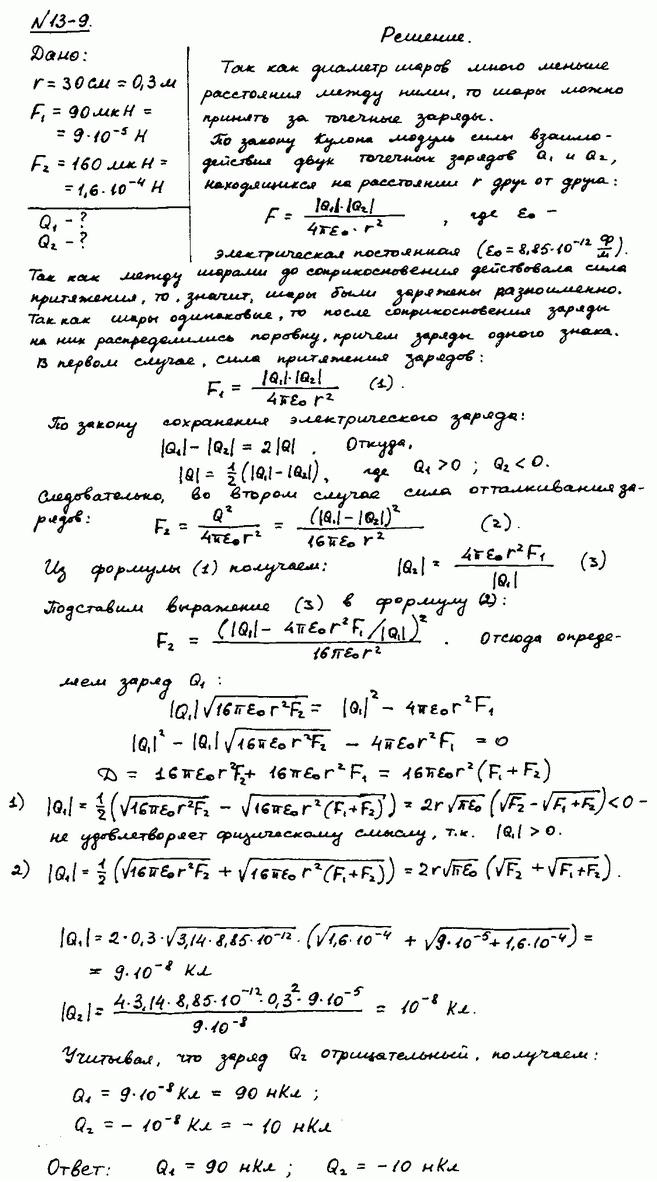 N 13-9.
Дано:
r = 30 см = 0,3 м
F₁ = 90 мкН =
= 9·10⁻⁵ Н
F₂ = 160 мкН =
= 1,6·10⁻⁴ Н
Q₁ - ?
Q₂ - ?
Решение.
Так как диаметр шаров много меньше
расстояния между ними, то шары можно
принять за точечные заряды.
По закону Кулона модуль силы взаимо-
действия двух точечных зарядов Q₁ и Q₂,
находящихся на расстоянии r друг от друга:
F = |Q₁|·|Q₂| / 4πε₀·r² , где ε₀ –
электрическая постоянная (ε₀ = 8,85·10⁻¹² Ф/м).
Так как между шарами до соприкосновения действовала сила
притяжения, то, значит, шары были заряжены разноименно.
Так как шары одинаковые, то после соприкосновения заряды
на них распределились поровну, причем заряды одного знака.
В первом случае, сила притяжения зарядов:
F₁ = |Q₁|·|Q₂| / 4πε₀r² (1).
По закону сохранения электрического заряда:
|Q₁| - |Q₂| = 2|Q| . Откуда,
|Q| = 1/2 (|Q₁| - |Q₂|), где Q₁ > 0 ; Q₂ < 0.
Следовательно, во втором случае сила отталкивания за-
рядов: F₂ = Q² / 4πε₀r² = (|Q₁| - |Q₂|)² / 16πε₀r² (2).
Из формулы (1) получаем: |Q₂| = 4πε₀r²F₁ / |Q₁| (3)
Подставим выражение (3) в формулу (2):
F₂ = (|Q₁| - 4πε₀r²F₁/|Q₁|)² / 16πε₀r² . Отсюда опреде-
ляем заряд Q₁ :
|Q₁|√(16πε₀r²F₂) = |Q₁|² - 4πε₀r²F₁
|Q₁|² - |Q₁|√(16πε₀r²F₂) - 4πε₀r²F₁ = 0
D = 16πε₀r²F₂ + 16πε₀r²F₁ = 16πε₀r²(F₁ + F₂)
1) |Q₁| = 1/2 (√(16πε₀r²F₂) - √(16πε₀r²(F₁+F₂))) = 2r√(πε₀) (√F₂ - √(F₁+F₂)) < 0 -
не удовлетворяет физическому смыслу, т.к. |Q₁| > 0.
2) |Q₁| = 1/2 (√(16πε₀r²F₂) + √(16πε₀r²(F₁+F₂))) = 2r√(πε₀) (√F₂ + √(F₁+F₂)).
|Q₁| = 2·0,3·√(3,14·8,85·10⁻¹²)·(√(1,6·10⁻⁴) + √(9·10⁻⁵+1,6·10⁻⁴)) =
= 9·10⁻⁸ Кл
|Q₂| = 4·3,14·8,85·10⁻¹²·0,3²·9·10⁻⁵ / 9·10⁻⁸ = 10⁻⁸ Кл.
Учитывая, что заряд Q₂ отрицательный, получаем:
Q₁ = 9·10⁻⁸ Кл = 90 нКл ;
Q₂ = - 10⁻⁸ Кл = - 10 нКл
Ответ: Q₁ = 90 нКл ; Q₂ = -10 нКл